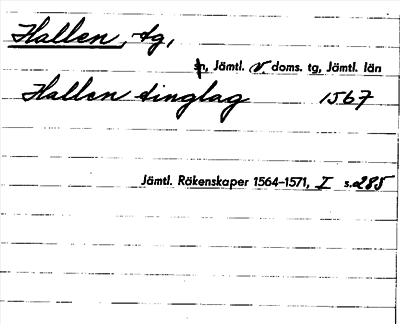 Hallen, tg,
sn, Jämtl. v doms. tg, Jämtl. län
Hallen tinglag 1567
Jämtl. Räkenskaper 1564–1571, I s. 285